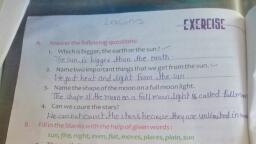 EXERCISE
A. Answer the following questions:
1. Which is bigger, the earth or the sun?
The sun is bigger than the earth
2. Name two important things that we get from the sun.
We get heat and light from the sun
3. Name the shape of the moon on a full moon light.
The shape of the moon on a full moon light is called full moon
4. Can we count the stars?
We can not count the stars because they are unlimited in
B. Fill in the blanks with the help of given words:
sun, five, night, even, flat, moves, places, plain, sun